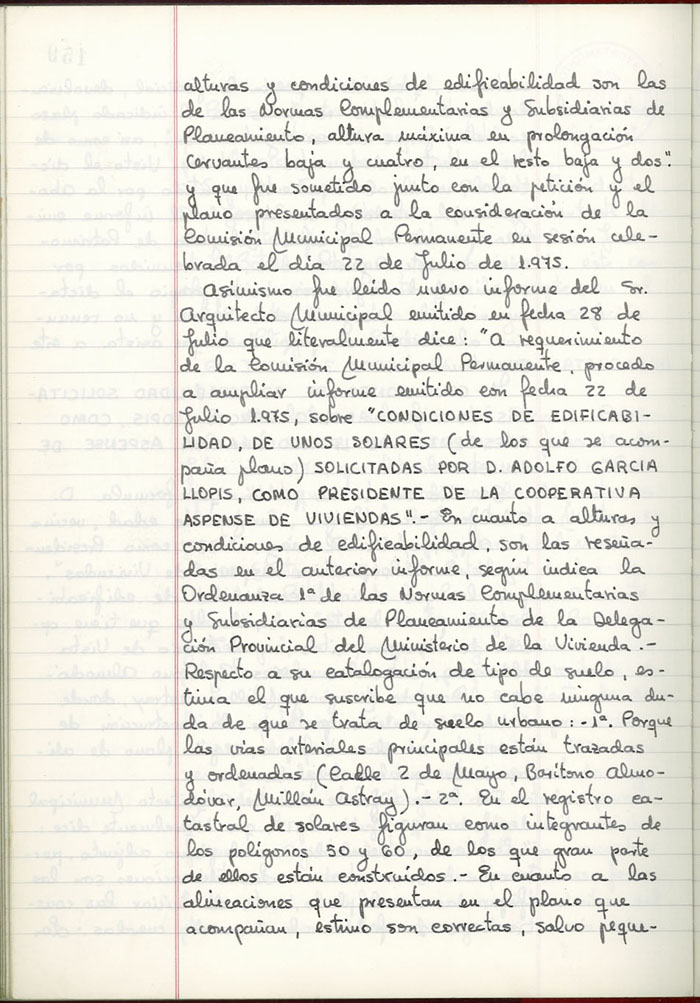 alturas y condiciones de edificabilidad son las
de las Normas Complementarias y Subsidiarias de
Planeamiento, altura máxima en prolongación
Cervantes baja y cuatro, en el resto baja y dos".
y que fue sometido junto con la petición y el
plano presentados a la consideración de la
Comisión Municipal Permanente en sesión cele-
brada el día 22 de Julio de 1.975.
Asimismo fue leído nuevo informe del Sr.
Arquitecto Municipal emitido en fecha 28 de
Julio que literalmente dice: "A requerimiento
de la Comisión Municipal Permanente, procedo
a ampliar informe emitido con fecha 22 de
Julio 1.975, sobre "CONDICIONES DE EDIFICABI-
LIDAD, DE UNOS SOLARES (de los que se acom-
paña plano) SOLICITADAS POR D. ADOLFO GARCIA
LLOPIS, COMO PRESIDENTE DE LA COOPERATIVA
ASPENSE DE VIVIENDAS".- En cuanto a alturas y
condiciones de edificabilidad, son las reseña-
das en el anterior informe, según indica la
Ordenanza 1ª de las Normas Complementarias
y Subsidiarias de Planeamiento de la Delega-
ción Provincial del Ministerio de la Vivienda.-
Respecto a su catalogación de tipo de suelo, es-
tima el que suscribe que no cabe ninguna du-
da de que se trata de suelo urbano:-1ª. Porque
las vías arteriales principales están trazadas
y ordenadas (Calle 2 de Mayo, Barítono Almo-
dóvar, Millán Astray).- 2ª. En el registro ca-
tastral de solares figuran como integrantes de
los polígonos 50 y 60, de los que gran parte
de ellos están construídos.- En cuanto a las
alineaciones que presentan en el plano que
acompañan, estimo son correctas, salvo peque-